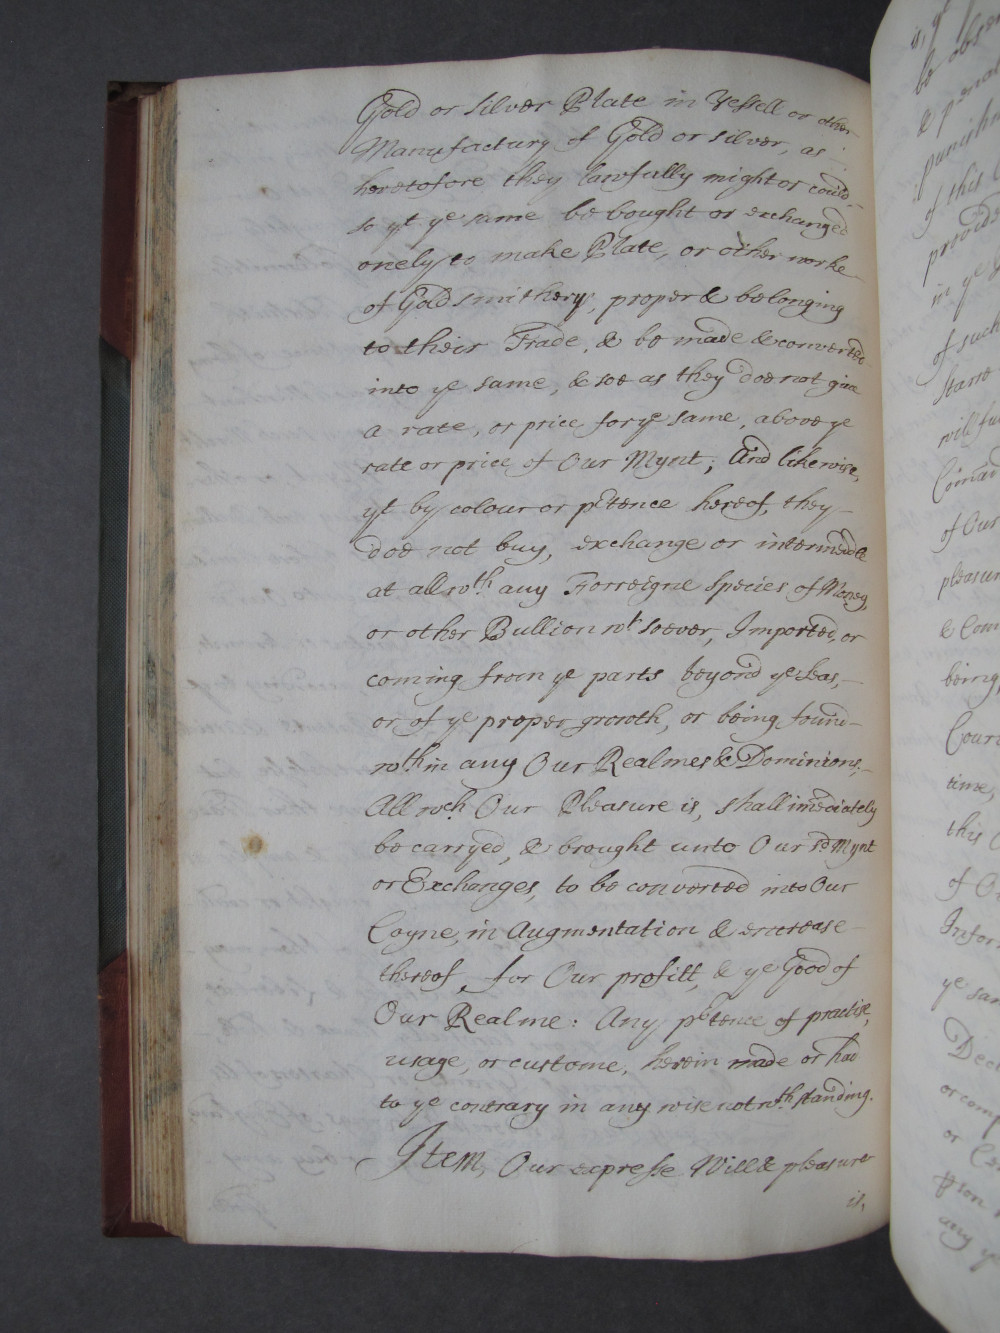 Gold or silver Plate in Vessell or other
Manufactury of Gold or silver, as
heretofore they lawfully might or could
so yt ye same be bought or exchanged
onely to make Plate, or other worke
of Goldsmithery, proper & belonging
to their Trade, & be made & converted
into ye same, & soe as they doe not give
a rate, or price for ye same, above ye
rate or price of Our Mynt; And likewise,
yt by colour or ptence hereof, they
doe not buy, exchange or intermedle
at all wth any Forreigne Species of Money,
or other Bullion wt soever, Imported, or
coming from ye parts beyond ye Seas,
or of ye proper growth, or being found
wth in any Our Realmes & Dominions;
All wch Our Pleasure is, shall imediately
be carryed, & brought unto Our sd. Mynt
or Exchanges, to be converted into Our
Coyne, in Augmentation & encrease
thereof, for Our profitt, & ye Good of
Our Realme: Any ptence of practise,
usage, or custome, herein made or had
to ye contrary in any wise notwth standing.
Item, Our expresse Will & pleasure
is,
is, yt
be obse
of this
in ye
of such
will fu
of Our
pleasur
& Com
being
Cour
time,
this
of O
Infor
ye sam
Decl
or comp
or
any ye